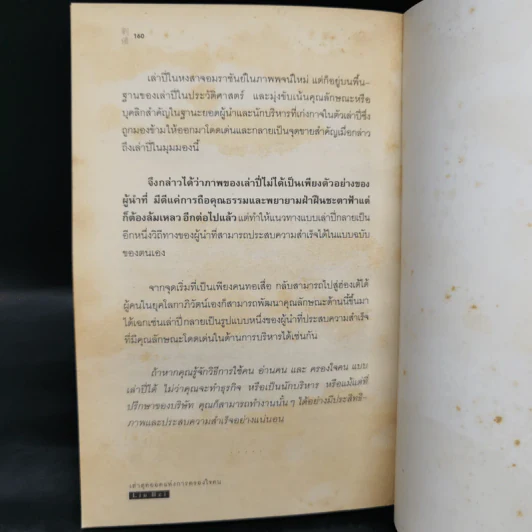 160
เล่าปี่ในหงสาจอมราชันย์ในภาพพจน์ใหม่ แต่ก็อยู่บนพื้น-
ฐานของเล่าปี่ในประวัติศาสตร์ และมุ่งขับเน้นคุณลักษณะหรือ
บุคลิกสำคัญในฐานะยอดผู้นำและนักบริหารที่เก่งกาจในตัวเล่าปี่ซึ่ง
ถูกมองข้ามให้ออกมาโดดเด่นและกลายเป็นจุดขายสำคัญเมื่อกล่าว
ถึงเล่าปี่ในมุมมองนี้
จึงกล่าวได้ว่าภาพของเล่าปี่ไม่ได้เป็นเพียงตัวอย่างของ
ผู้นำที่ มีดีแค่การถือคุณธรรมและพยายามฝ่าฝืนชะตาฟ้าแต่
ก็ต้องล้มเหลว อีกต่อไปแล้ว แต่ทำให้แนวทางแบบเล่าปี่กลายเป็น
อีกหนึ่งวิถีทางของผู้นำที่สามารถประสบความสำเร็จได้ในแบบฉบับ
ของตนเอง
จากจุดเริ่มที่เป็นเพียงคนทอเสื่อ กลับสามารถไปสู่ฮ่องเต้ได้
ผู้คนในยุคโลกาภิวัตน์เองก็สามารถพัฒนาคุณลักษณะด้านนี้ขึ้นมา
ได้เฉกเช่นเล่าปี่ กลายเป็นรูปแบบหนึ่งของผู้นำที่ประสบความสำเร็จ
ที่มีคุณลักษณะโดดเด่นในด้านการบริหารได้เช่นกัน
ถ้าหากคุณรู้จักวิธีการใช้คน อ่านคน และ ครองใจคน แบบ
เล่าปี่ได้ ไม่ว่าคุณจะทำธุรกิจ หรือเป็นนักบริหาร หรือแม้แต่ที่
ปรึกษาของบริษัท คุณก็สามารถทำงานนั้น ๆ ได้อย่างมีประสิทธิ-
ภาพและประสบความสำเร็จอย่างแน่นอน
เล่าสุดยอดแห่งการครองใจคน
Liu Bei